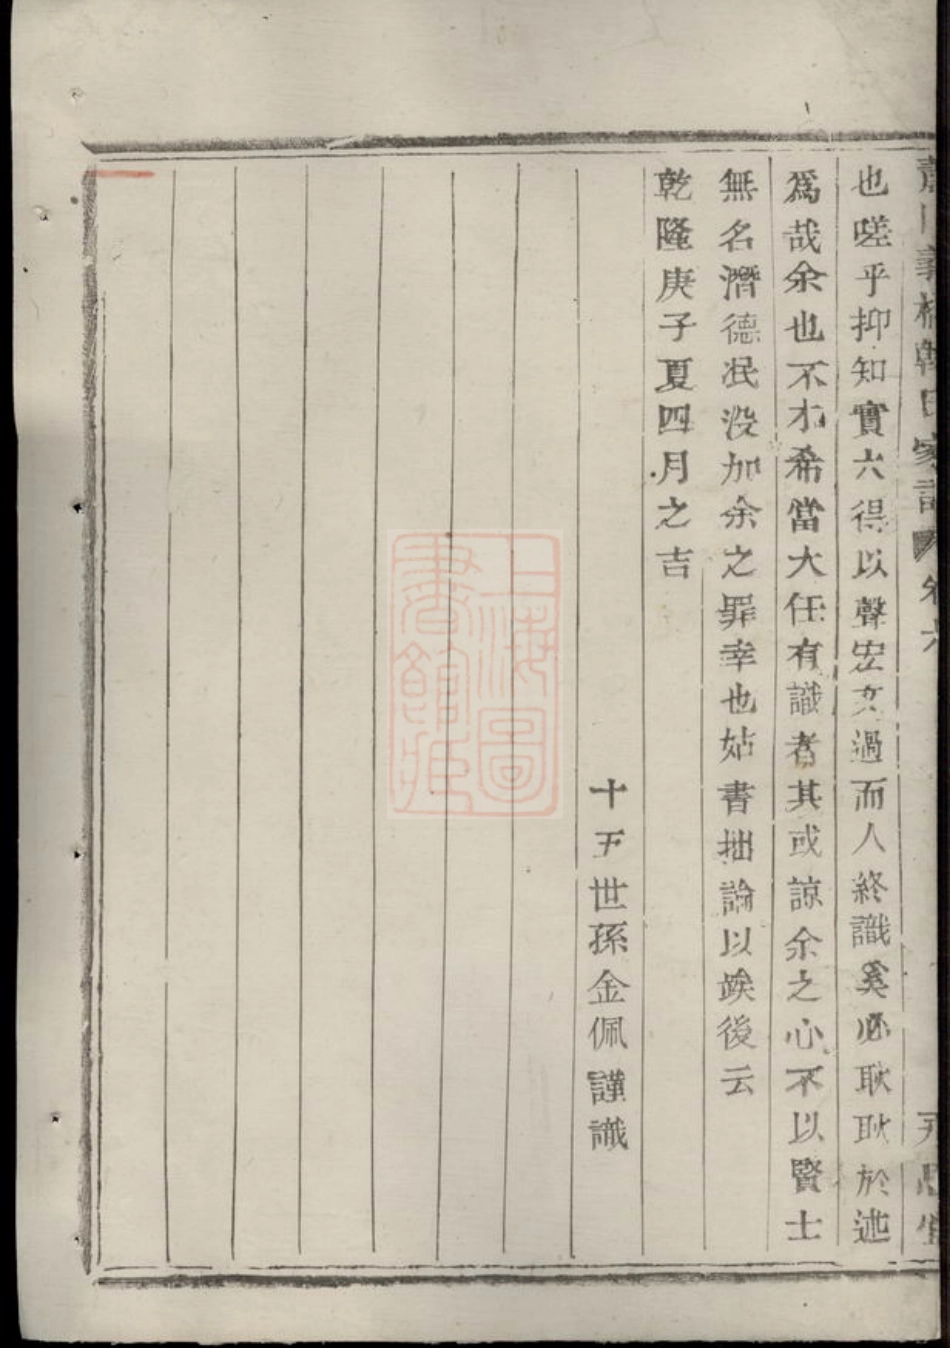 蕭山義橋韓氏家譜 卷六
也嗟乎抑知實大得以聲宏文過而人終識奚必耿耿於述
爲哉余也不才希當大任有識者其或諒余之心不以賢士
無名潛德泯没加余之罪幸也姑書拙論以竢後云
乾隆庚子夏四月之吉
十五世孫金佩謹識
上海圖書館藏